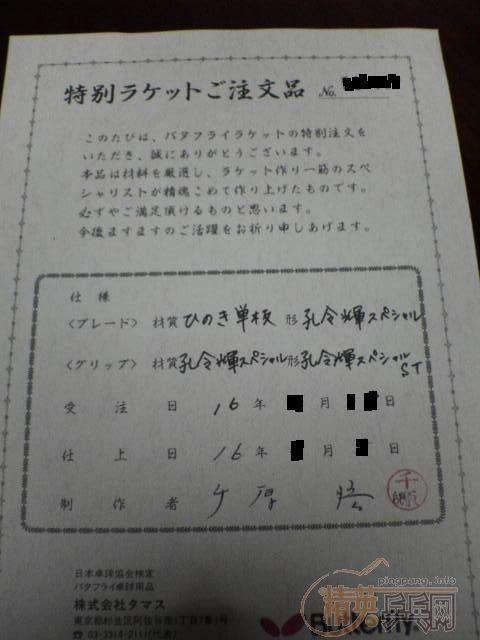 特別ラケットご注文品 No.
このたびは、バタフライラケットの特別注文を
いただき、誠にありがとうございます。
本品は材料を厳選し、ラケット作り一筋のスペ
シャリストが精魂こめて作り上げたものです。
必ずやご満足頂けるものと思います。
今後ますますのご活躍をお祈り申しあげます。
仕様
〈ブレード〉 材質 ひのき単板 形 孔令輝スペシャル
〈グリップ〉 材質 孔令輝スペシャル 形 孔令輝スペシャル ST
受注日 16年 月 日
仕上日 16年 月 日
制作者
日本卓球協会検定
バタフライ卓球用品
株式会社タマス
東京都杉並区阿佐谷南1丁目7番1号
☎ 03-3314-2111(代表)
Butterfly
pingpang.info
精英乒乓网